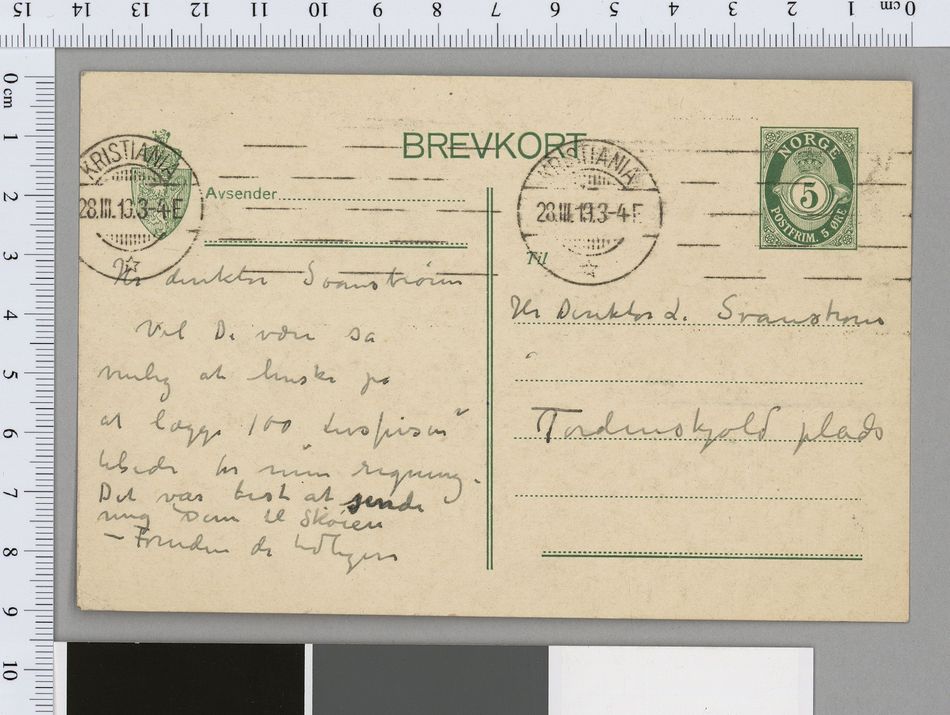 15 14 13 12 11 10 9 8 7 6 5 4 3 2 1 cm 0
0 cm 1 2 3 4 5 6 7 8 9 10
BREVKORT
NORGE
5
POSTFRIM. 5 ØRE
KRISTIANIA
28.III.19.3-4E
KRISTIANIA
28.III.19.3-4E
Avsender
Til
Hr direktør Svanstrøm
Vil De være så
venlig at huske på
at lægge 100
tilside for min regning.
Det var best at sende
mig dem til Skøien
Hr Direktør Svanstrøm
Tordenskjold plads